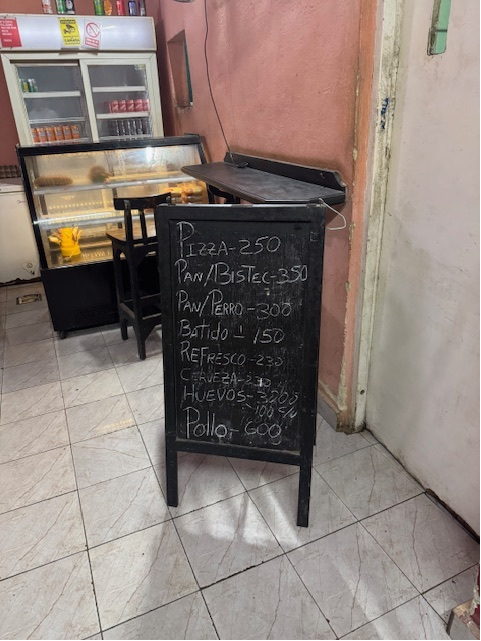 Pizza-250
Pan/Bistec-350
Pan/Perro-300
Batido-150
Refresco-230
Cerveza-230
Huevos-3000
100 c/u
Pollo-600